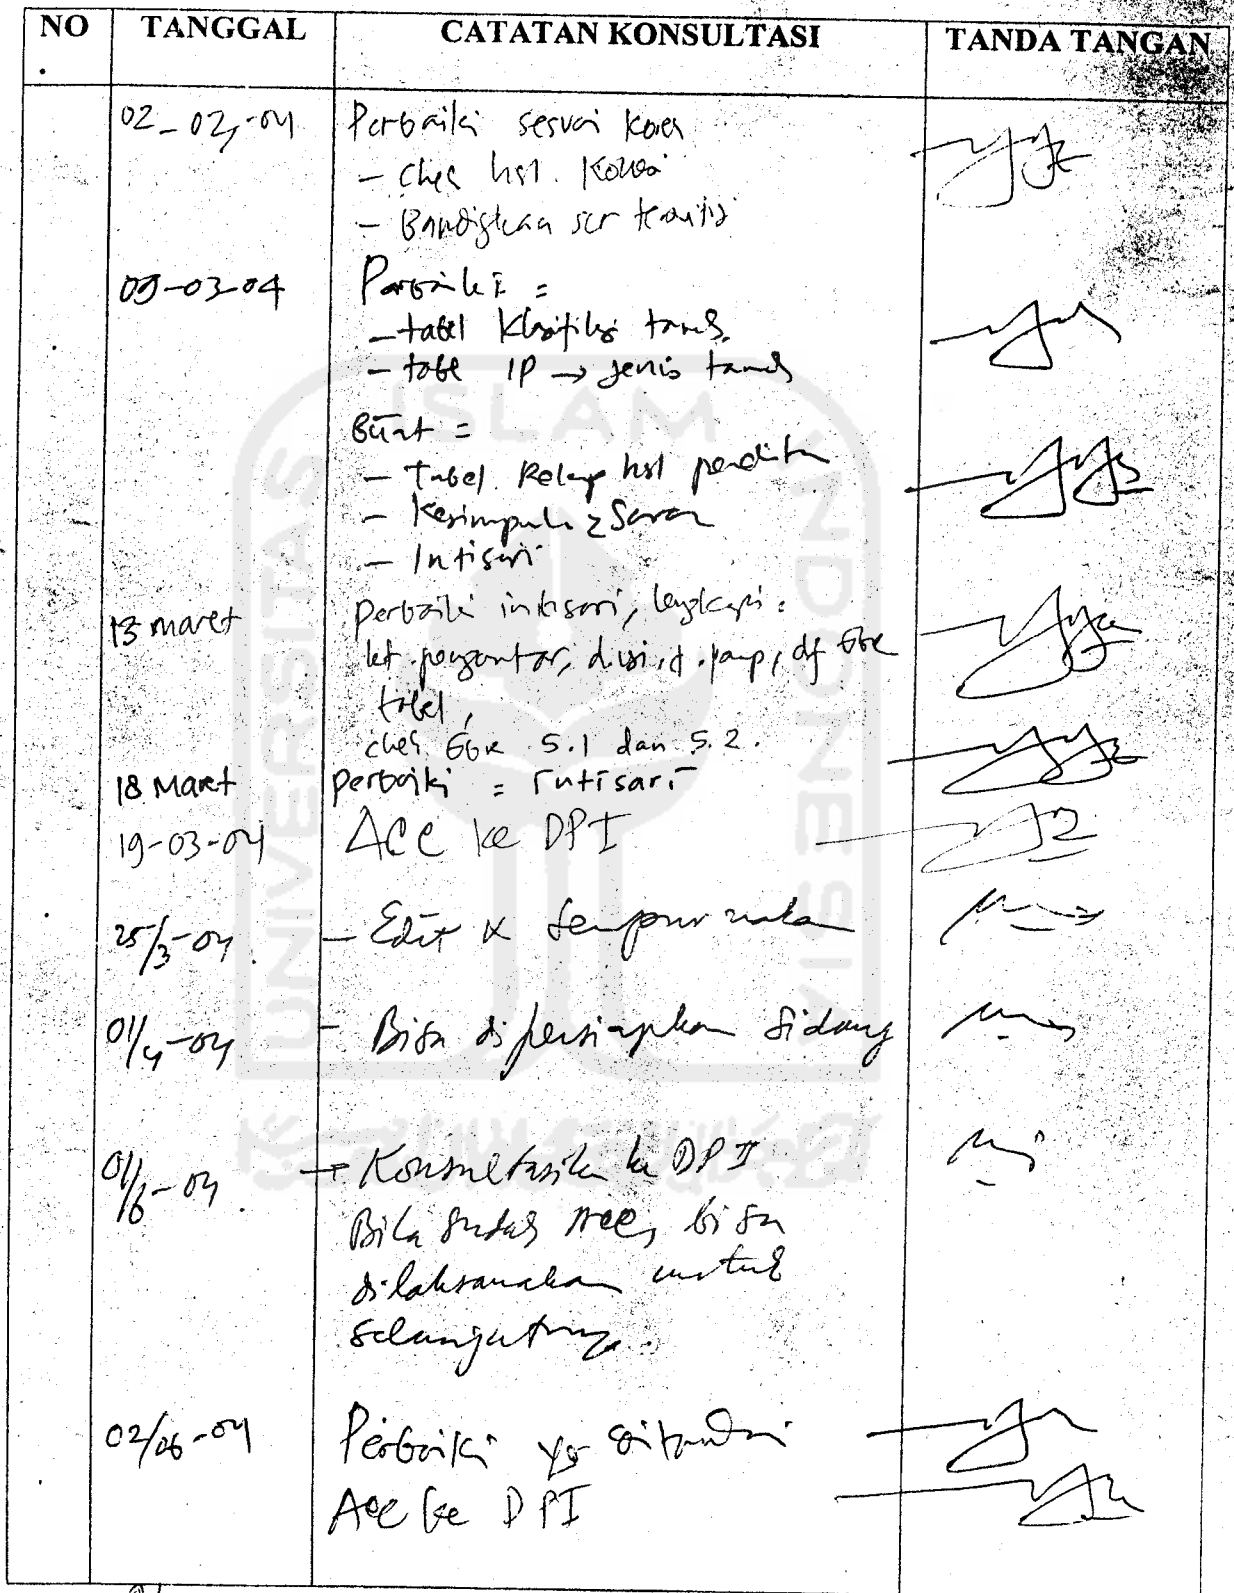 NO TANGGAL CATATAN KONSULTASI TANDA TANGAN
.
02-02-04 Perbaiki sesuai
- Chek hsl.
- scr
09-03-04 Perbaiki =
- tabel Klasifikasi tanah
- tabel IP → jenis tanah
Buat =
- Tabel Rekap hsl
- Kesimpul & Saran
- Intisari
13 maret perbaiki intisari, lengkapi :
pengantar, d. isi, d. lamp, df Gbr
tabel,
chek Gbr 5.1 dan 5.2.
18 Maret perbaiki = Intisari
19-03-04 ACC ke DPI
25/3-04. - Edit & Sempurnakan
01/4-04 - Bisa dipersiapkan Sidang
01/6-04. → Konsultasikan ke DPI
Bila sudah Acc, bisa
dilaksanakan untuk
selanjutnya.
02/06-04 Perbaiki yg ditandai
Acc ke DPI
UNIVERSITAS ISLAM INDONESIA